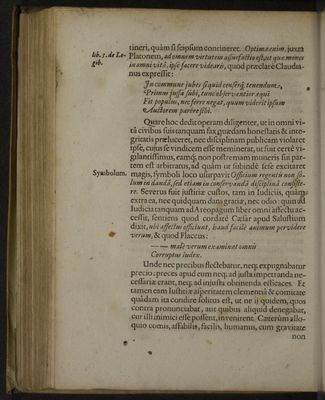 tineri, quàm si seipsum contineret. Optima enim, juxta
lib. 5. de Legib.
Platonem, ad omnem virtutem assuefactio est, ut quæ mones
in omni vitâ, ipse facere videaris, quod præclarè Claudianus expressit:
In commune jubes si quid censesq́; tenendum,
Primus jussa subi, tunc observantior æqui
Fit populus, nec ferre negat, quum viderit ipsum
Auctorem parere sibi.
Quare hoc dedit operam diligenter, ut in omni vitâ civibus suis tanquam fax quædam honestatis & integritatis præluceret, nec disciplinam publicam violaret
ipse, cujus se vindicem esse meminerat, ut fuit certè vigilantissimus, eamq́; non postremam muneris sui partem est arbitratus, ad quam ut subinde sese excitaret
Symbolum.
magis, symboli loco usurpavit Officium regentis non solum in dandâ, sed etiam in conservandâ disciplinâ consistere. Severus fuit justitiæ custos, tam in Judiciis, quàm
extra ea, nec quidquam datum gratiæ, nec odio: quin ad
Judicia tanquam ad Areopagum liber omni affectu accessit, sentiens quod cordatè Cæsar apud Salustium
dixit, ubi affectus officiunt, haud facilè animum pervidere
verum, & quod Flaccus:
— — malè verum examinat omnis
Corruptus iudex.
Unde nec precibus flectebatur, neq; expugnabatur
precio: preces apud eum neq; ad justa impetranda necessariæ erant, neq; ad injusta obtinenda efficaces. Et
tamen eam Justitiæ asperitatem clementiâ & comitate
quâdam ita condire solitus est, ut ne ij quidem, quos
contra pronunciabat, aut quibus aliquid denegabat,
cur illi inimici esse possent, invenirent. Cæterùm alloquio comis, affabilis, facilis, humanus, cum gravitate
non